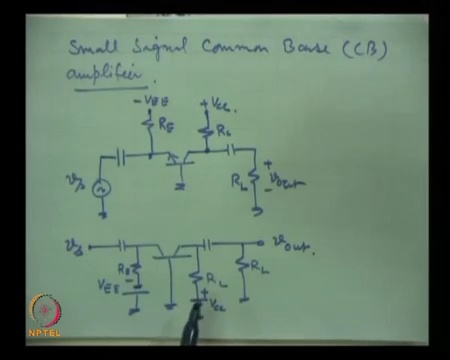 Small Signal Common Base (CB)
amplifier.
-VEE +VCC
RE RL
vs RL + vout -
vs vout
RE RL RL
VEE - + VCC
NPTEL